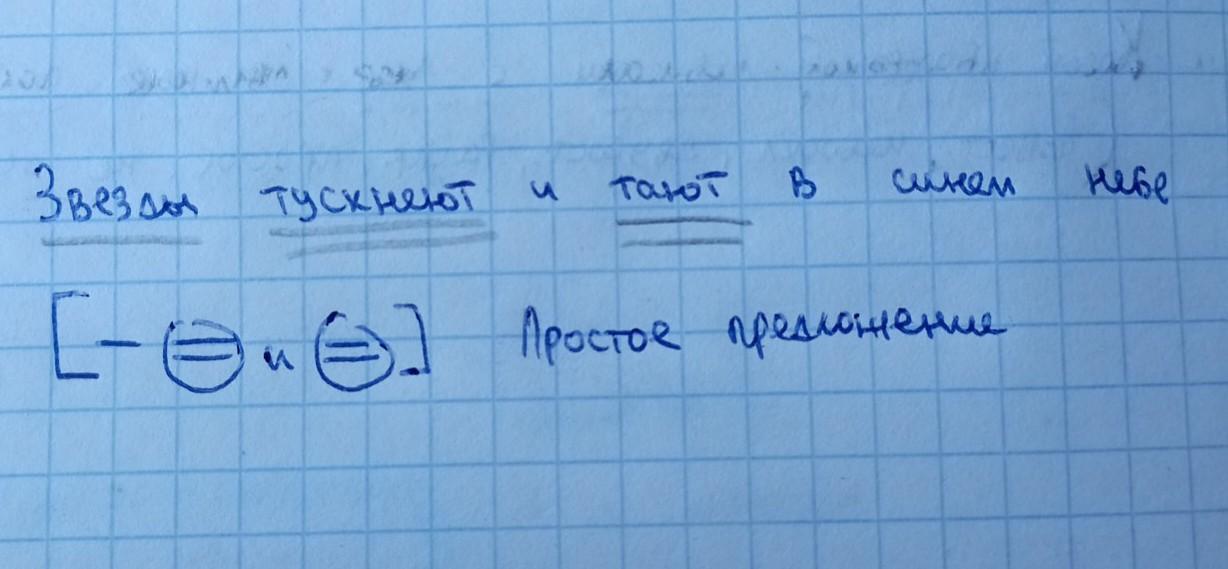 Звезды тускнеют и тают в синем небе
[ – = и = ] Простое предложение